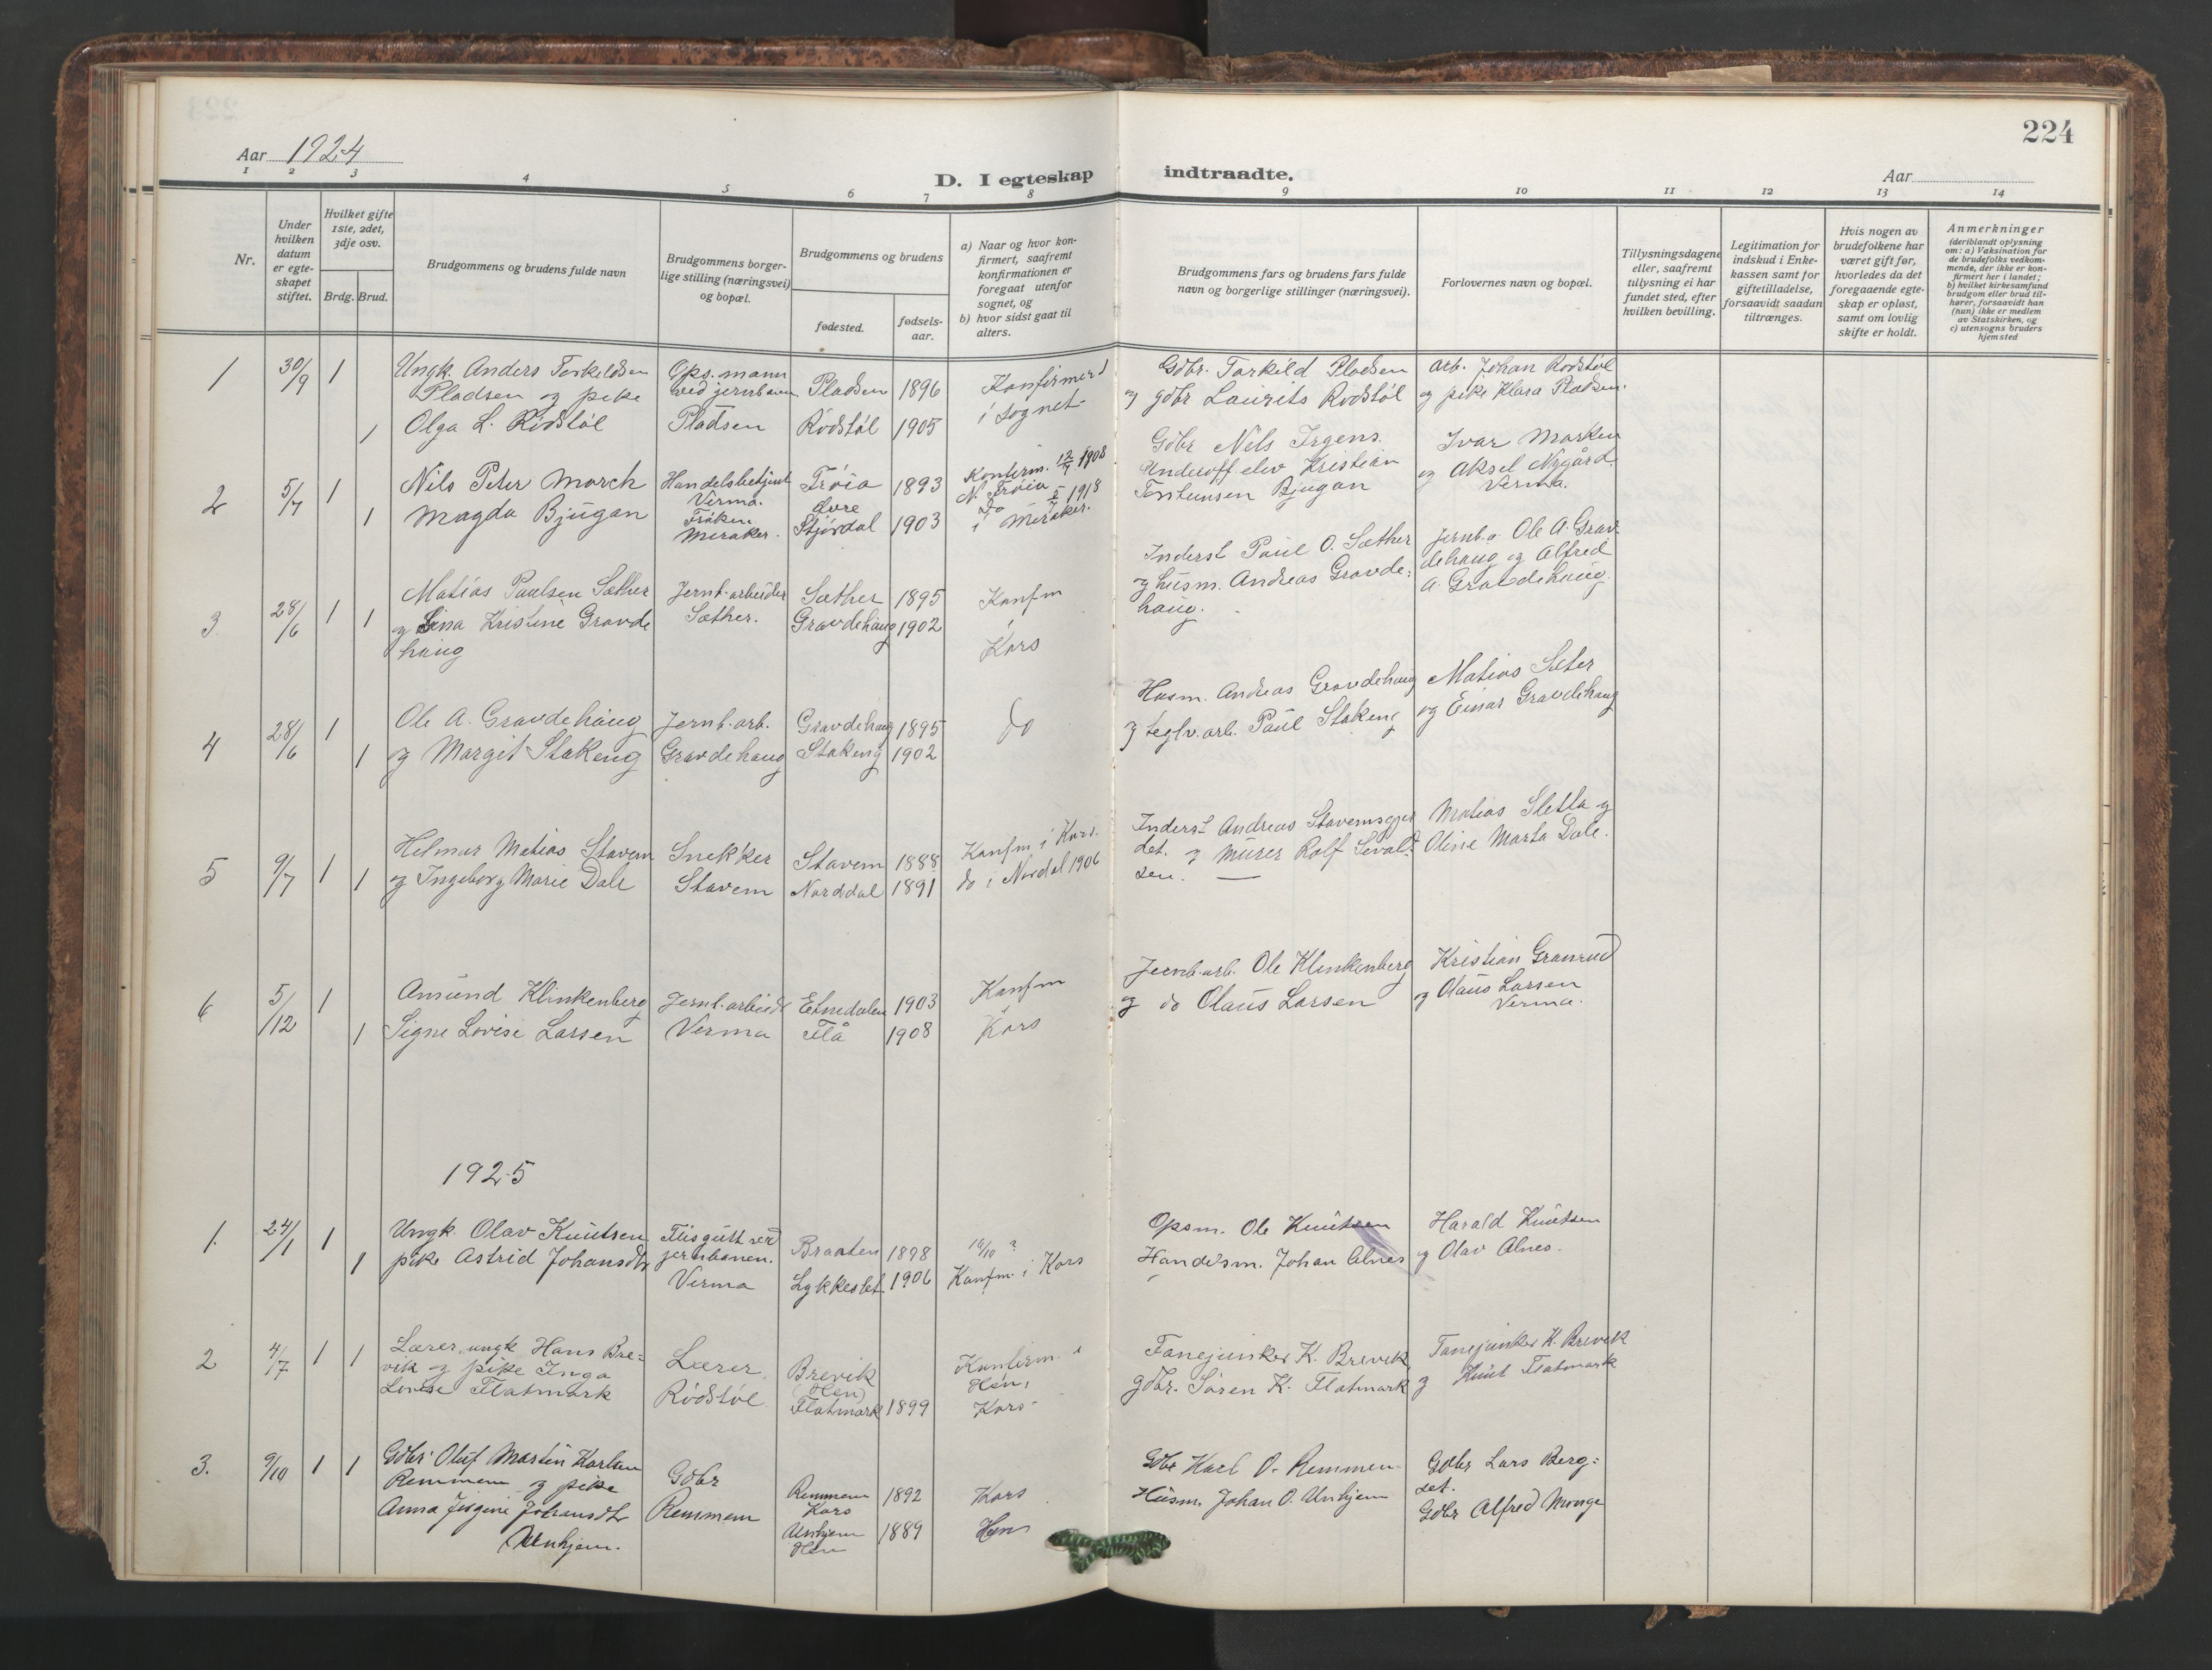 224
Aar 1924
D. I egteskap indtraadte.
Aar
1 2 3 4 5 6 7 8 9 10 11 12 13 14
Nr.
Under hvilken datum er egteskapet stiftet.
Hvilket gifte 1ste, 2det, 3dje osv.
Brdg. Brud.
Brudgommens og brudens fulde navn
Brudgommens borgerlige stilling (næringsvei) og bopæl.
Brudgommens og brudens
fødested.
fødselsaar.
a) Naar og hvor konfirmert, saafremt konfirmationen er foregaat utenfor sognet, og
b) hvor sidst gaat til alters.
Brudgommens fars og brudens fars fulde navn og borgerlige stillinger (næringsvei).
Forlovernes navn og bopæl.
Tillysningsdagene eller, saafremt tillysning ei har fundet sted, efter hvilken bevilling.
Legitimation for indskud i Enkekassen samt for giftetilladelse, forsaavidt saadan tiltrænges.
Hvis nogen av brudefolkene har været gift før, hvorledes da det foregaaende egteskap er opløst, samt om lovlig skifte er holdt.
Anmerkninger
(deriblandt oplysning om: a) Vaksination for de brudefolks vedkommende, der ikke er konfirmert her i landet;
b) hvilket kirkesamfund brudgom eller brud tilhører, forsaavidt han (hun) ikke er medlem av Statskirken, og
c) utensogns bruders hjemsted
1 30/9 1 Ungk. Anders Torkildsen Ops. mann Konfirmert Gdbr. Torkild Pladsen Arb. Johan Rødstøl
Pladsen og pike ved jernbanen Pladsen 1896 i sognet og gdbr Laurits Rødstøl og pike Klara Pladsen.
1 Olga L. Rødstøl Pladsen Rødstøl 1905
2 5/7 1 Nils Peter Morck Handelsbetjent Frøia 1893 Konfirm. 12/7 1908 Gdbr Nils Irgens. Ivar Marken
Verma. N. Frøia Underoff. elev Kristian og Aksel Nygård.
1 Magda Bjugan Frøken Øvre Do 1918 Torstensen Bjugan Verma.
Meraker. Stjørdal 1903 i Meraker.
3 28/6 1 1 Matias Paulsen Sæther Jernb. arbeider Sæther 1895 Konfm Inderst Paul O. Sæther Jernb.a. Ole A. Grav-
og Lina Kristine Gravde Sæther. Gravdehaug 1902 i og husm. Andreas Gravde= dehaug og Alfred
haug Kors haug. A. Gravdehaug.
4 28/6 1 Ole A. Gravdehaug Jernb. arb. Gravdehaug 1895 do Husm. Andreas Gravdehaug Matias Sæter
1 og Margit Stakeng Gravdehaug Stakeng 1902 og teglv. arb. Paul Stakeng og Einar Gravdehaug
5 9/7 1 Helmar Matias Stavem Snekker Stavem 1888 Konfm i Kors. Inderst Andreas Stavemsgjer Matias Sletta og
1 og Ingeborg Marie Dale Stavem Norddal 1891 do i Nordal 1906 det. og murer Rolf Seval= Oline Marta Dale.
sen.
6 5/12 1 Amund Klinkenberg Jernb. arbeider Etnedalen 1903 Konfm Jernb. arb. Ole Klinkenberg Kristian Granrud
1 Signe Lovise Larsen Verma Flå 1908 Kors og do Olaus Larsen og Olaus Larsen
Verma.
1925
1. 24/1 1 Ungk. Olav Knutsen Flisgutt ved Braaten 1898 16/10 ? Opsm. Ole Knutsen Harald Knutsen
1 pike Astrid Johansdtr jernbanen. Lykkeslet 1906 Konfm. i Kors Handelsm. Johan Alnes og Olav Alnes.
Verma
2 4/7 1 1 Lærer, ungk Hans Bre= Lærer, Brevik Konfirm. i Fanejunker K. Brevik Fanejunker K. Brevik
vik og pike Inga Rødstøl (Hen) Hen, gdbr. Søren K. Flatmark og Knut Flatmark
Lovise Flatmark Flatmark 1899 Kors
3. 9/10 1 1 Gdbr. Oluf Martin Karlsen Gdbr Remmem 1892 Kors Gdbr Karl O. Remmen Gdbr Lars Berg=
Remmem og pike Remmem Kors Husm. Johan O. Unhjem det.
Anna Jørgine Johansdtr Unhjem 1889 Hen Gdbr Alfred Monge
Unhjem. Hen